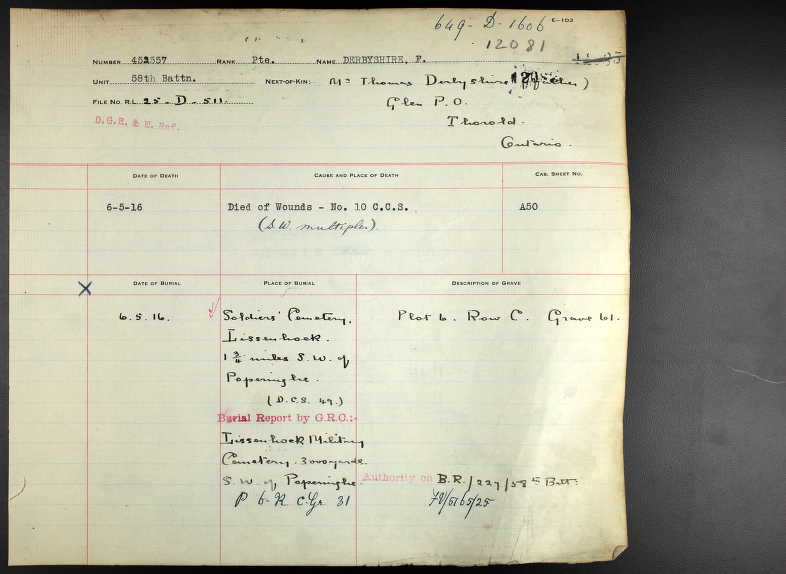 649-D-1606 E-103
12081
NUMBER 452357 RANK Pte. NAME DERBYSHIRE, F.
UNIT 58th Battn. NEXT-OF-KIN: Mr Thomas Derbyshire
FILE NO. R.L. 25-D-511.
Glen P.O.
Thorold.
Ontario.
O.G.R. & E. Ref.
DATE OF DEATH CAUSE AND PLACE OF DEATH CAS. SHEET NO.
6-5-16 Died of Wounds - No. 10 C.C.S. A50
(S.W. multiple).
DATE OF BURIAL PLACE OF BURIAL DESCRIPTION OF GRAVE
6.5.16. Soldiers' Cemetery, Plot 6. Row C. Grave 61.
Lissenhoek.
1 3/4 miles S.W. of
Poperinghe.
(D.C.S. 49.)
Burial Report by G.R.C.:-
Lissenhoek Military
Cemetery. 3000 yards.
S.W. of Poperinghe. Authority on B.R./227/58th Batt.
P 6 R C Gr 31